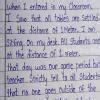 when I entered in my classroom,
I saw that all tables are settled
at the distance of 1 Meter. I am
Sitting on my desk. All Students are
at the distance of 1 meter.
that day was our game period but
teacher strictly tell to all Students
that no one goes outside of the